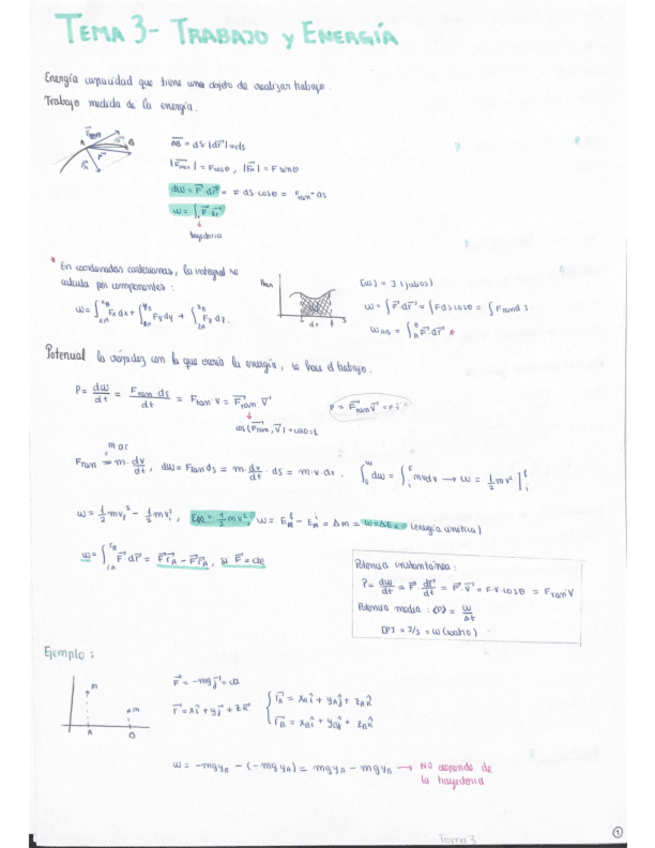 TEMA 3- TRABAJO y ENERGÍA
Energía capacidad que tiene una objeto de realizar trabajo.
Trabajo medida de la energía.
A B
AB = ds |dr|=ds
|Ftan| = F cosθ , |Fn| = F sinθ
dw = F · dr = F ds · cosθ = Ftan · ds
w = ∫ F · dr
trayectoria
* En coordenadas cartesianas, la integral se
calcula por componentes :
w = ∫ Fx dx + ∫ Fy dy + ∫ Fz dz.
[w] = J (julios)
w = ∫ F dr = ∫ F ds cosθ = ∫ Ftan d s
wAB = ∫ F · dr *
la rapidez con la que varía la energía, se hace el trabajo.
P = dw/dt = Ftan · ds/dt = Ftan · v = Ftan · v
P = Ftan v = F · v
Ftan = m · dv/dt , dw = Ftan ds = m · dv/dt · ds = m · v · dv . ∫ dw = ∫ mvdv → w = 1/2 mv² ]
w = 1/2 mvf² - 1/2 mvi² , w = ΔEc (energía cinética)
w = ∫ F dr = , si F = cte
Potencia instantánea :
P = dw/dt = F · dr/dt = F · v = F · v · cosθ = Ftan v
Potencia media : <P> = w/Δt
[P] = J/s = w (watio)
Ejemplo :
m m
A B
F = -mg j = cte
r = xi + yj + zk
rA = xA i + yA j + zA k
rB = xB i + yB j + zB k
w = -mgyB - (-mgyA) = mgyA - mgyB → NO depende de
la trayectoria
Tema 3
1